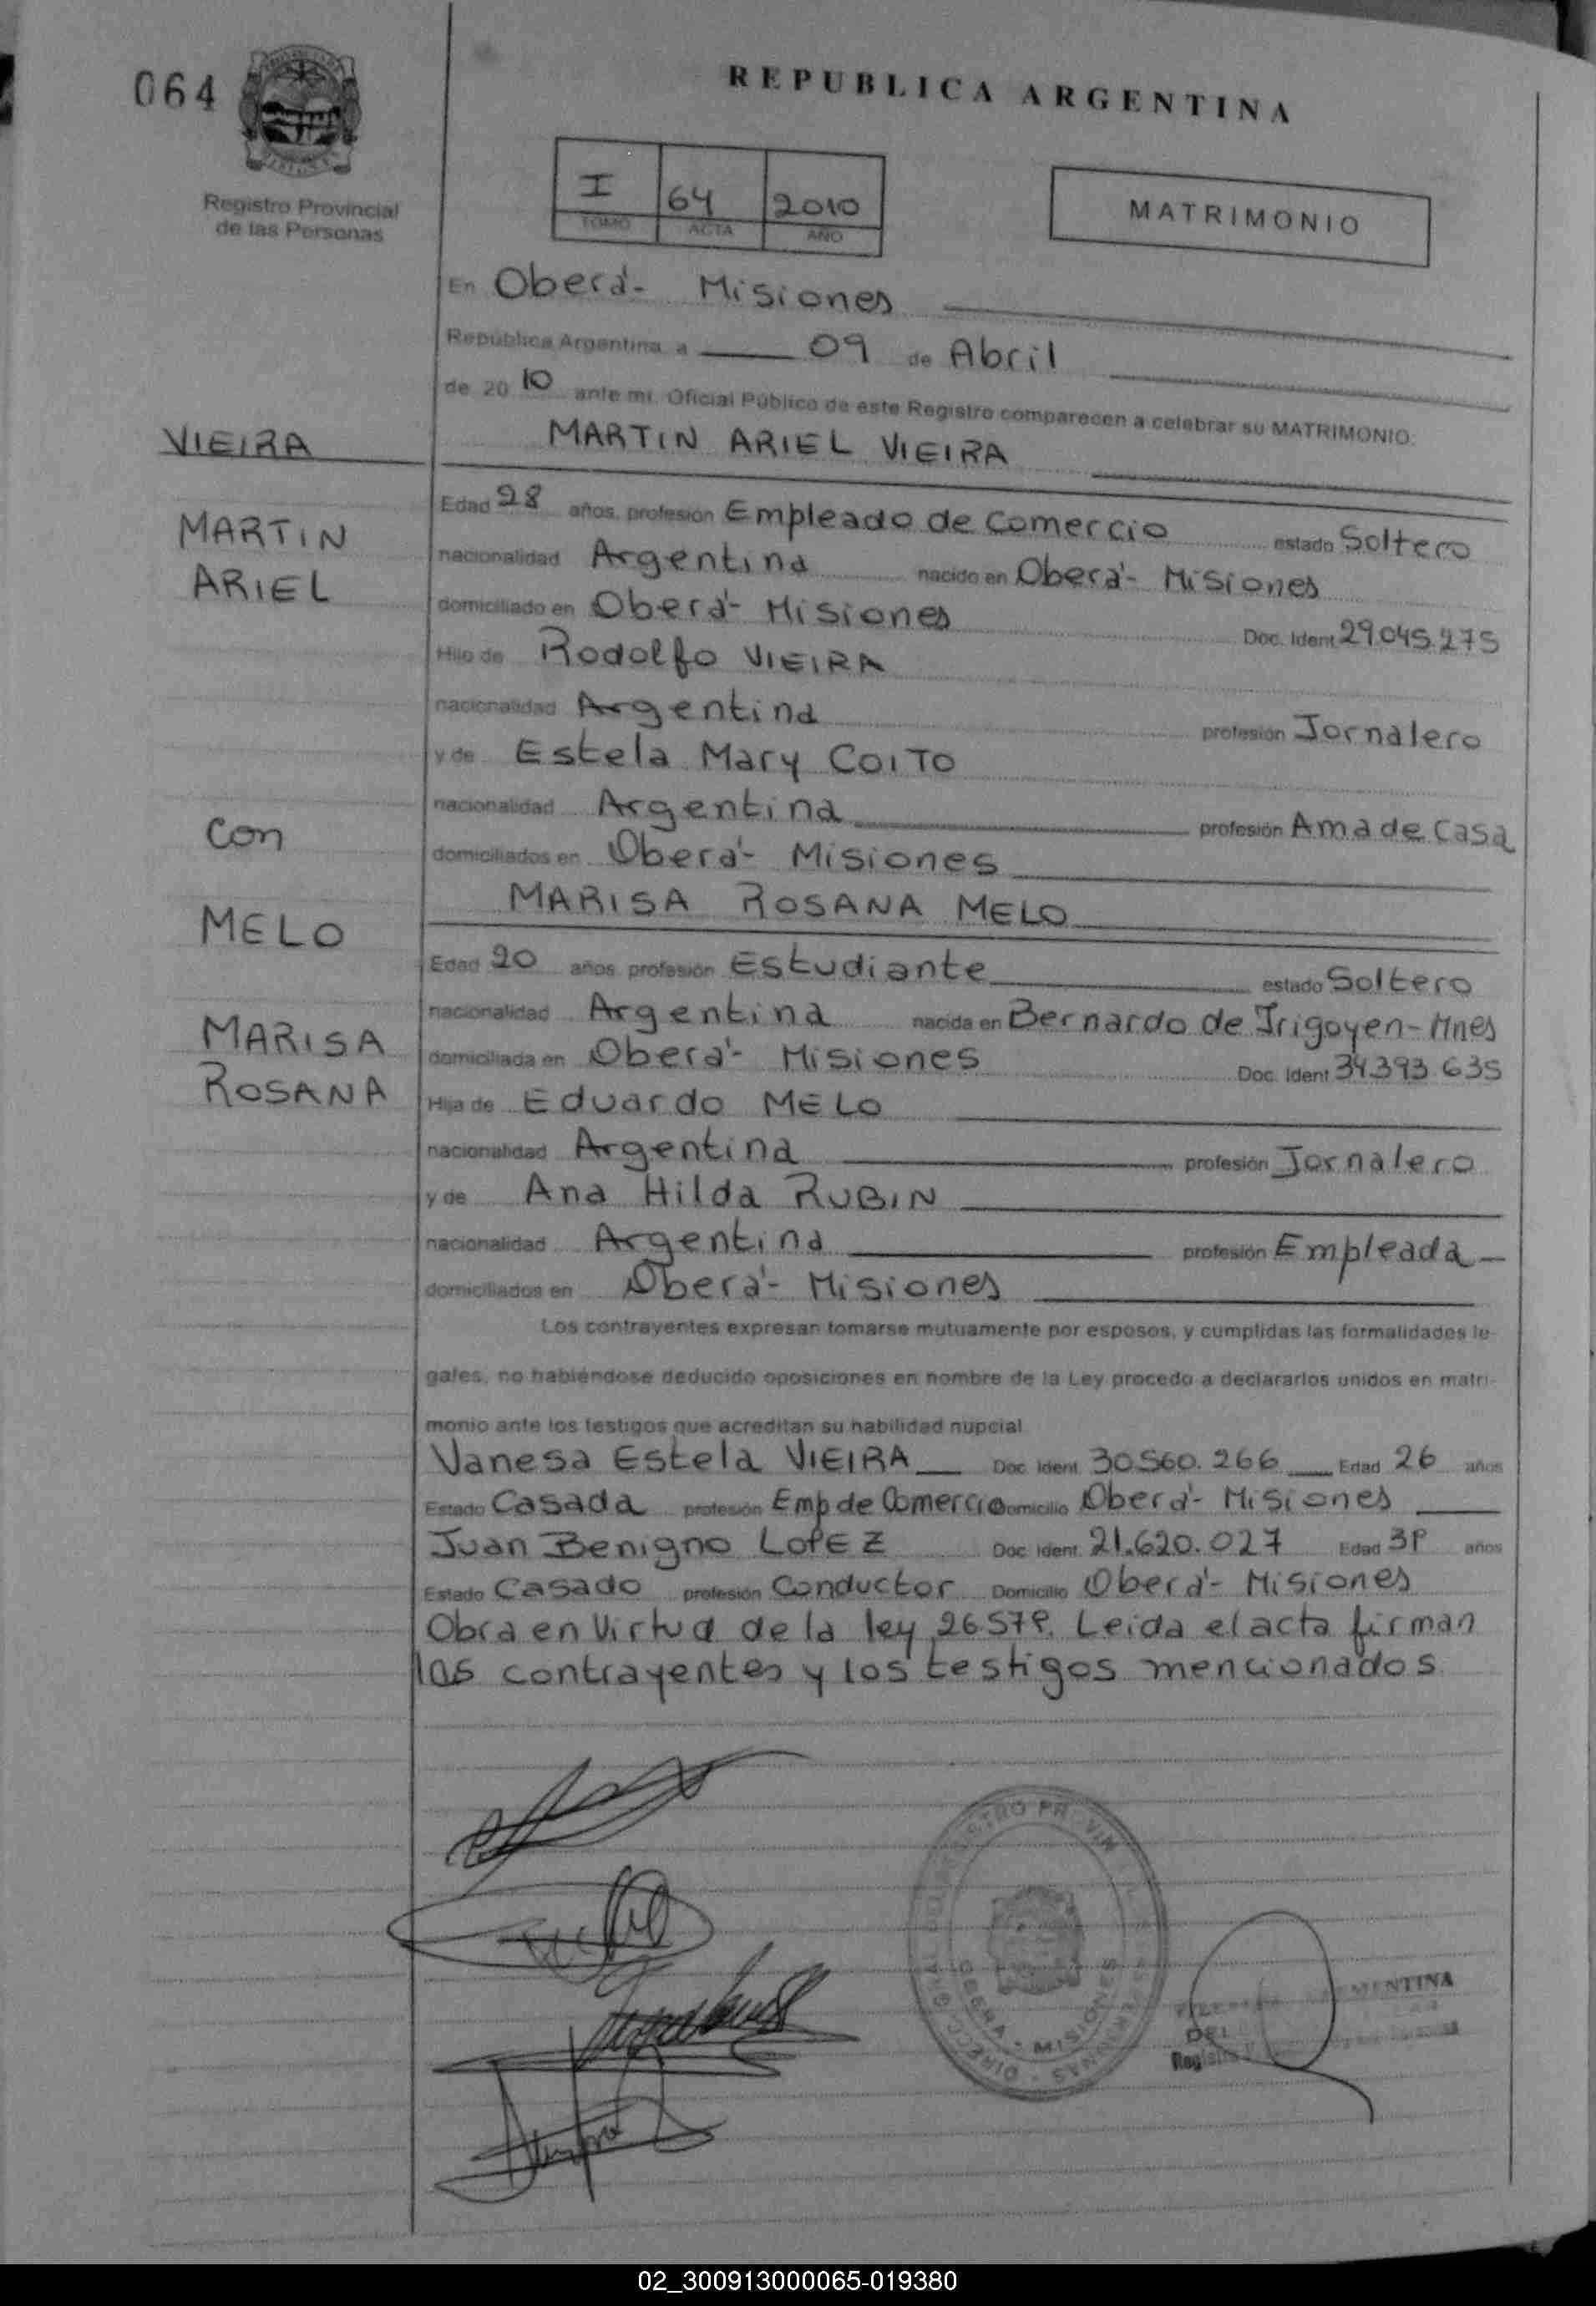 064
REPUBLICA ARGENTINA
Registro Provincial
de las Personas
I 64 2010
TOMO ACTA AÑO
MATRIMONIO
En Oberá- Misiones
República Argentina a 09 de Abril
de 20 10 ante mi, Oficial Público de este Registro comparecen a celebrar su MATRIMONIO:
VIEIRA
MARTIN ARIEL VIEIRA
MARTIN
ARIEL
Edad 28 años, profesión Empleado de Comercio estado Soltero
nacionalidad Argentina nacido en Oberá- Misiones
domiciliado en Oberá- Misiones Doc. Ident 29.045.275
Hijo de Rodolfo VIEIRA
nacionalidad Argentina profesión Jornalero
y de Estela Mary COITO
nacionalidad Argentina profesión Ama de Casa
con
domiciliados en Oberá- Misiones
MARISA ROSANA MELO
MELO
Edad 20 años profesión Estudiante estado Soltero
nacionalidad Argentina nacida en Bernardo de Irigoyen- Mnes
MARISA
ROSANA
domiciliada en Oberá- Misiones Doc. Ident 34.393.635
Hija de Eduardo MELO
nacionalidad Argentina profesión Jornalero
y de Ana Hilda RUBIN
nacionalidad Argentina profesión Empleada
domiciliados en Oberá- Misiones
Los contrayentes expresan tomarse mutuamente por esposos, y cumplidas las formalidades le-
gales, no habiéndose deducido oposiciones en nombre de la Ley procedo a declararlos unidos en matri-
monio ante los testigos que acreditan su habilidad nupcial
Vanesa Estela VIEIRA Doc. Ident. 30.560.266 Edad 26 años
Estado Casada profesión Emp de Comercio Domicilio Oberá- Misiones
Juan Benigno LOPEZ Doc. Ident. 21.620.027 Edad años
Estado Casado profesión Conductor Domicilio Oberá- Misiones
Obra en Virtud de la ley Leida el acta firman
los contrayentes y los testigos mencionados
OBERA - MISIONES
02_300913000065-019380